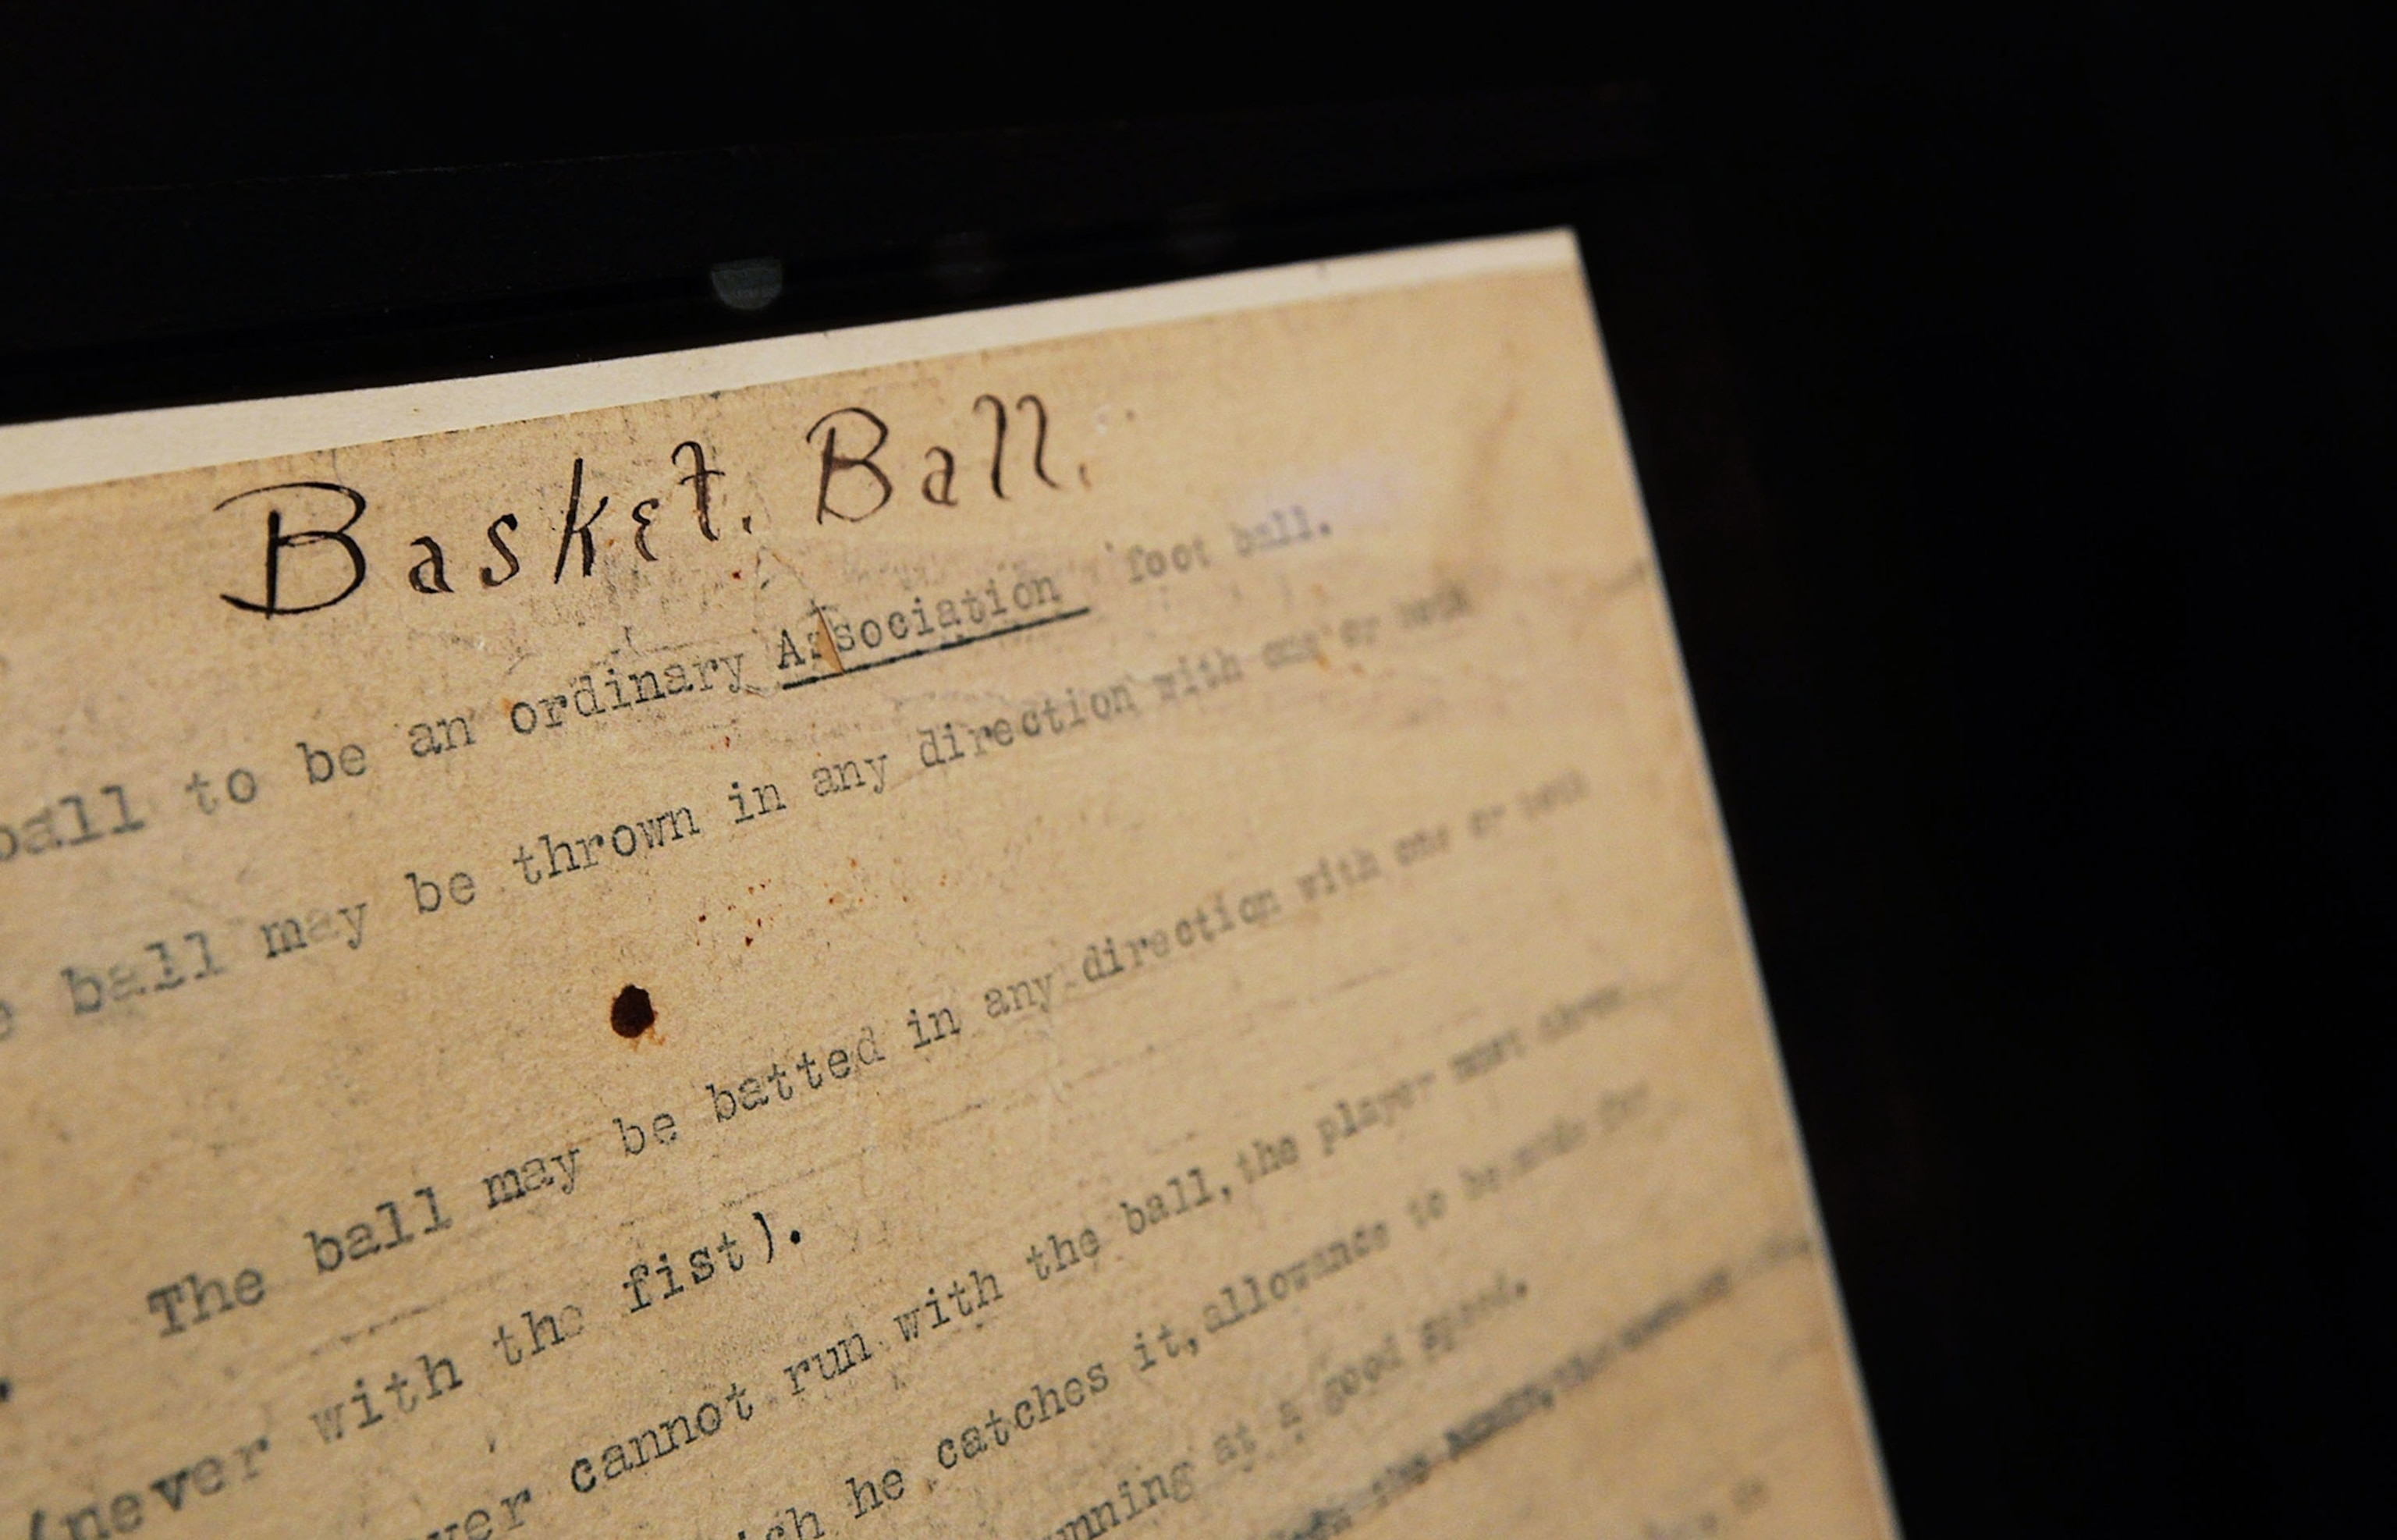 Basket. Ball.
ball to be an ordinary Association foot ball.
ball may be thrown in any direction with one or both
The ball may be batted in any direction with one or both
(never with the fist).
cannot run with the ball, the player must throw
he catches it, allowance to be made for
at a good speed.